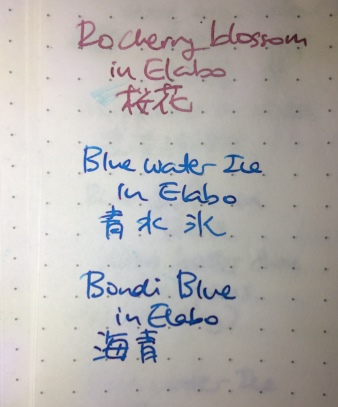 Rocherry blossom
in Elabo
桜花
Blue water Ice
in Elabo
青水氷
Bondi Blue
in Elabo
海青